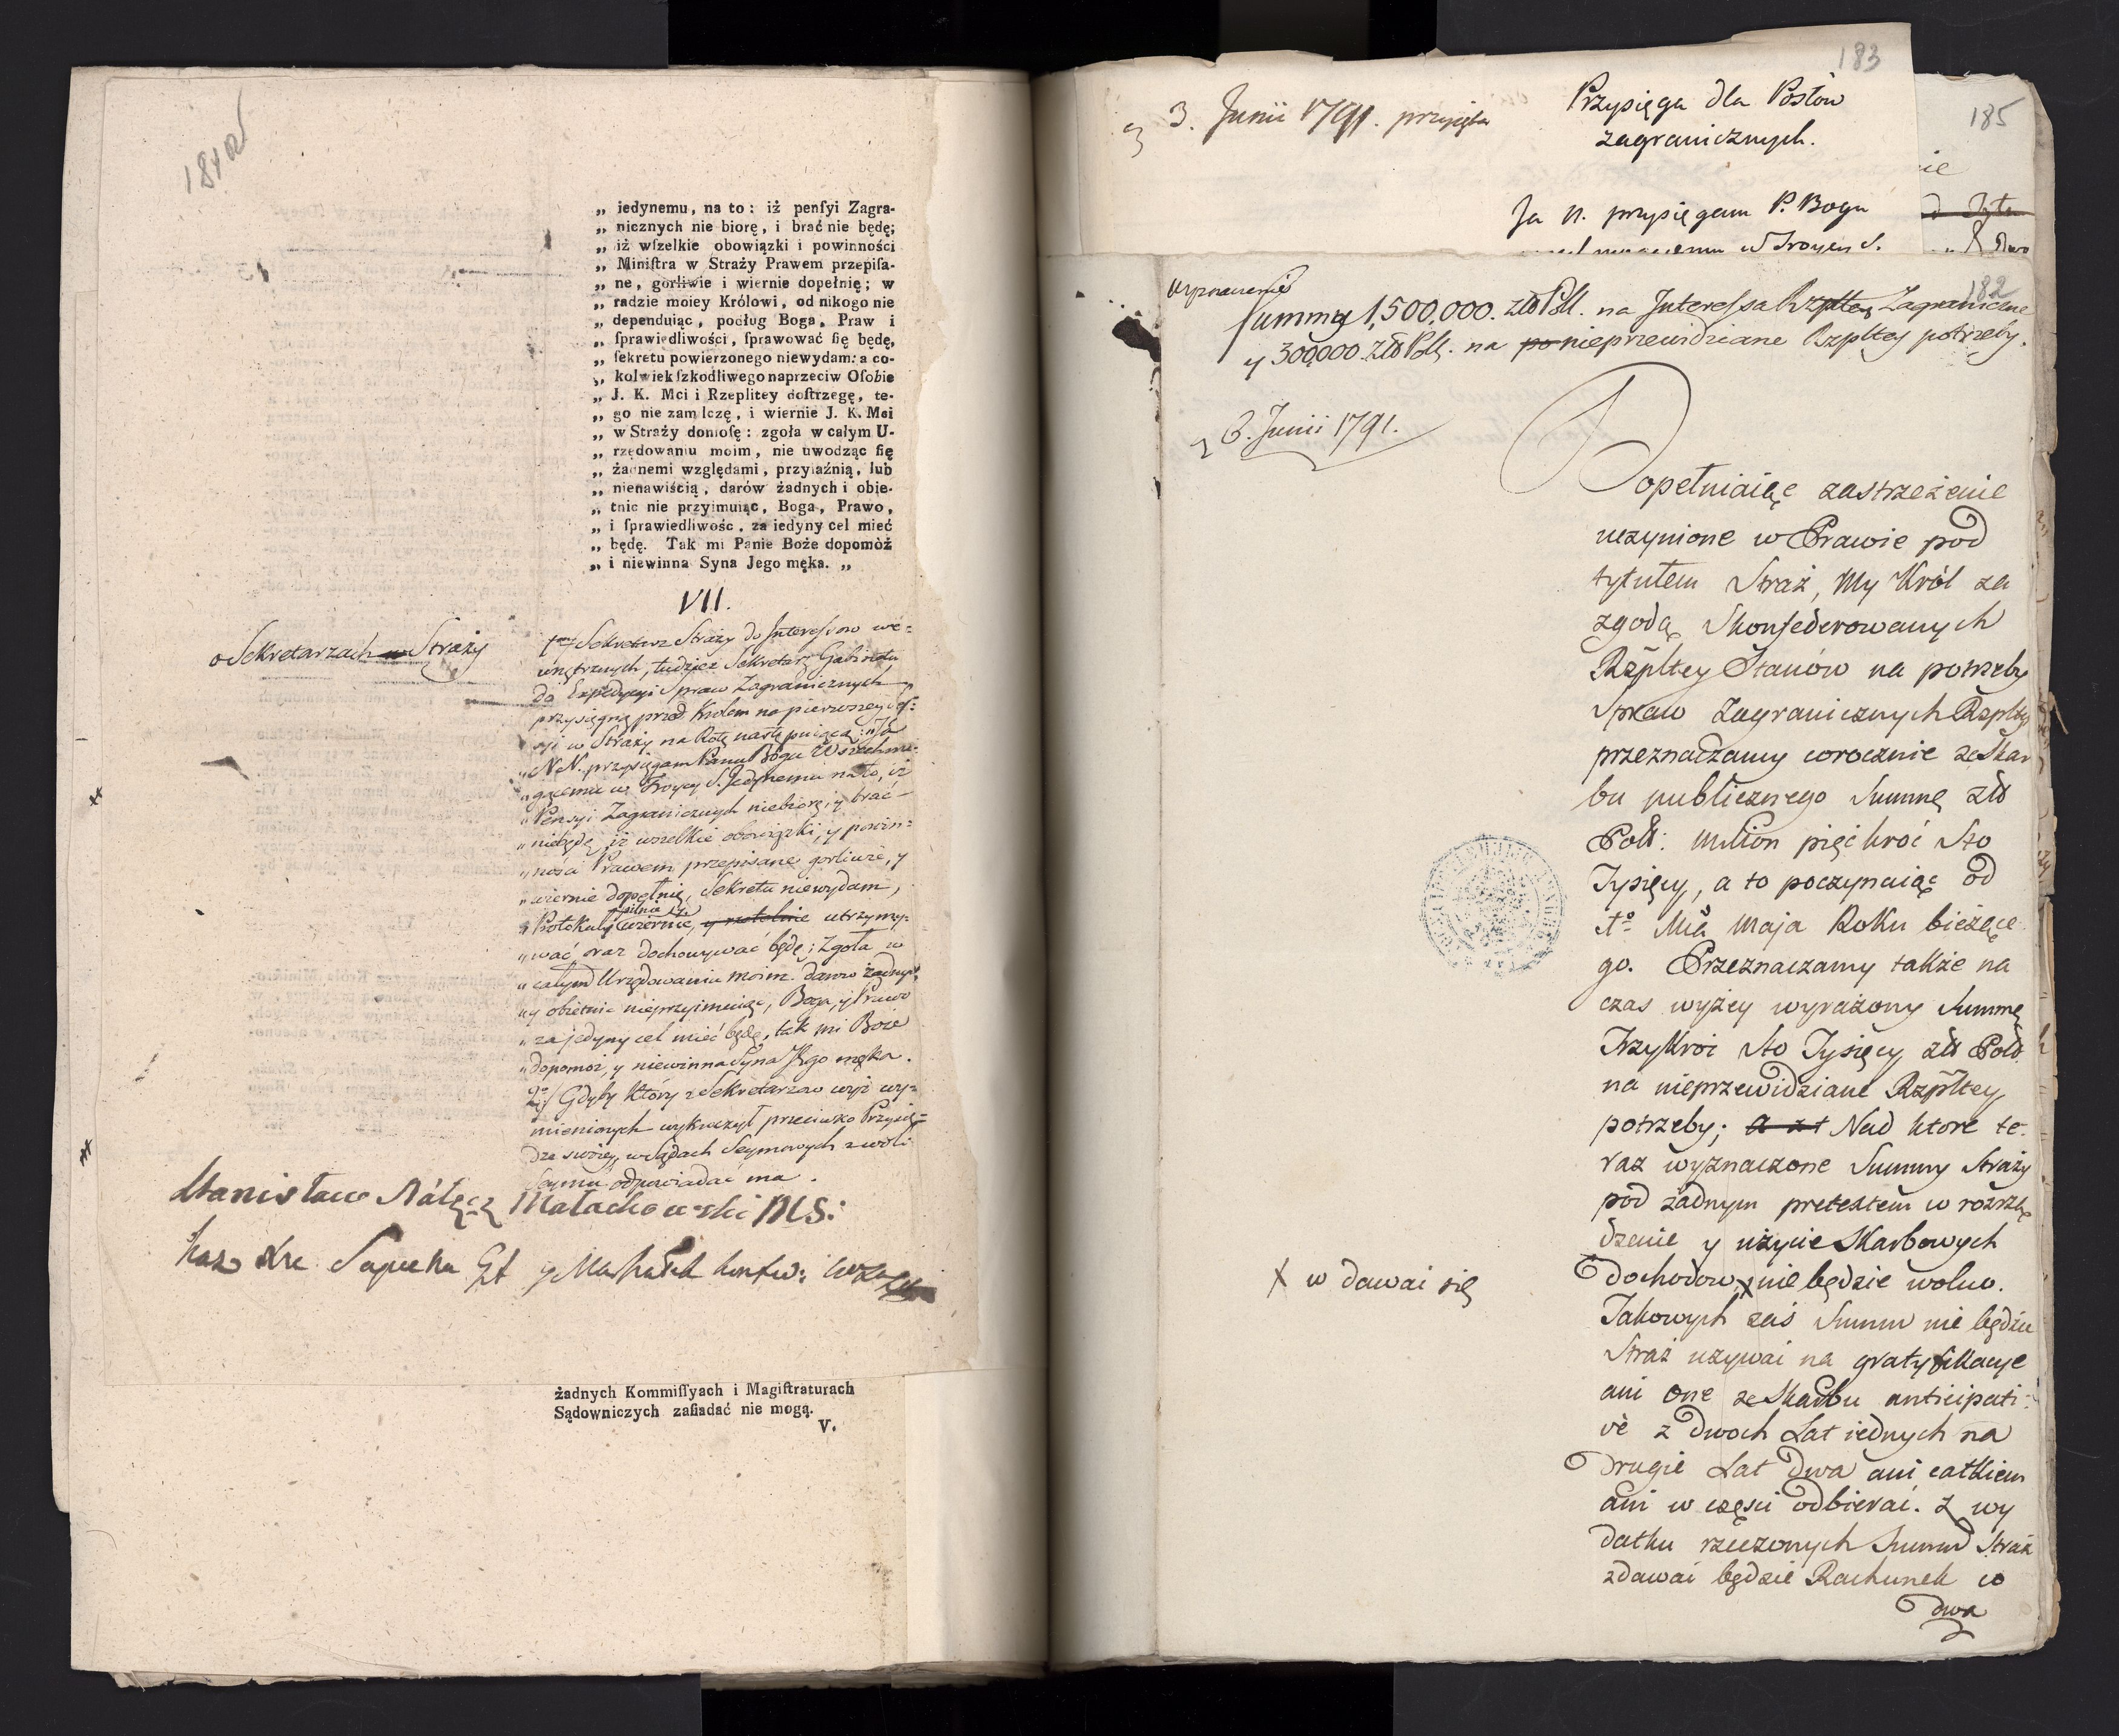 181 
„ iedynemu, na to: iż penſyi Zagra-
„ nicznych nie biorę, i brać nie będę;
„ iż wſzelkie obowiązki i powinności
„ Miniſtra w Straży Prawem przepiſa-
„ ne, gorliwie i wiernie dopełnię; w
„ radzie moiey Królowi, od nikogo nie
„ dependuiąc, podług Boga, Praw i
„ ſprawiedliwości, ſprawować ſię będę,
„ ſekretu powierzonego niewydam: a co-
„ kolwiek ſzkodliwego naprzeciw Oſobie
„ J. K. Mci i Rzeplitey doſtrzegę, te-
„ go nie zamlczę, i wiernie J. K. Mci
„ w Straży donioſę: zgoła w całym U-
„ rzędowaniu moim, nie uwodząc ſię
„ żadnemi względami, przyiaźnią, lub
„ nienawiścią, darów żadnych i obie-
„ tnic nie przyimuiąc, Boga, Prawo,
„ i ſprawiedliwośc, za iedyny cel mieć
„ będę. Tak mi Panie Boże dopomòż
„ i niewinna Syna Jego męka. „
VII.
o Sekretarzach w Straży
1mo Sekretarz Straży do Interessow we=
wnętrznych, tudzież Sekretarz Gabinetu
do Expedycyi Spraw Zagranicznych
przysięgną przed Królem na pierwszey Ses:
syi w Straży na Rotę następuiącą: „Ja
„N N. przysięgam Panu Bogu Wszechmo-
„gącemu w Troycy S. Jedynemu na to, iż
„Pensyi Zagranicznych niebiorę, y brać
„niebędę, iż wszelkie obowiązki, y powin=
„ności Prawem przepisane gorliwie, y
„wiernie dopełnię, Sekretu niewydam,
pilnie y
„Protokuły wiernie, y rzetelnie utrzymy-
„wać oraz dochowywać będę; Zgoła w
„całym Urzędowaniu moim darow żadnych
„y obietnic nieprzyimuiąc, Boga, y Prawo
„za jedyny cel mieć będę, tak mi Boże
„dopomoż, y niewinna Syna Jego męka.
2do Gdyby który z Sekretarzow wyż wy=
mienionych wykroczył przeciwko Przysię=
dze swoiey, w Sądach Seymowych z woli
Seymu odpowiadać ma.
Stanisław Nałęcz Małachowski MS:
Kaz Xże Sapieha
żadnych Kommiſſyach i Magiſtraturach
Sądowniczych zaſiadać nie mogą.
V.
183
3. Junii 1791. przyięta
Przysięga dla Posłow
zagranicznych.
185
Ja N. przysięgam P. Bogu
w Troycy S.
182
Wyznaczenie
Summy 1,500,000. Zło Pol. na Interessa Rzpltey Zagraniczne
y 300,000. Zło Pol. na po nieprzewidziane Rzpltey potrzeby.
3. Junii 1791.
Dopełniaiąc zastrzeżenie
uczynione w Prawie pod
tytułem Straż, My Król za
zgodą Skonfederowanych
Rzpltey Stanów na potrzeby
Spraw Zagranicznych Rzpltey
przeznaczamy corocznie ze Skar
bu publicznego Summę Zło
Pol: milion pięćkroć sto
Tysięcy, a to poczynaiąc od
Maja Roku bieżące
go. Przeznaczamy także na
czas wyżey wyrażony Summę
Trzykroć sto Tysięcy Zło Pol.
na nieprzewidziane Rzpltey
potrzeby; Nad ktore te-
raz wyznaczone Summy Straży
pod żadnym pretextem w rozrzą
dzenie y użycie Skarbowych
dochodow x nie będzie wolno.
X w dawać się
Takowych zaś Summ nie będzie
Straż używać na gratyfikacye
ani one ze Skarbu anticipati-
vè z dwoch Lat iednych na
drugie Lat dwa ani całkiem
ani w części odbierać. Z wy
datku rzeczonych Summ Straż
zdawać będzie Rachunek co
dwa